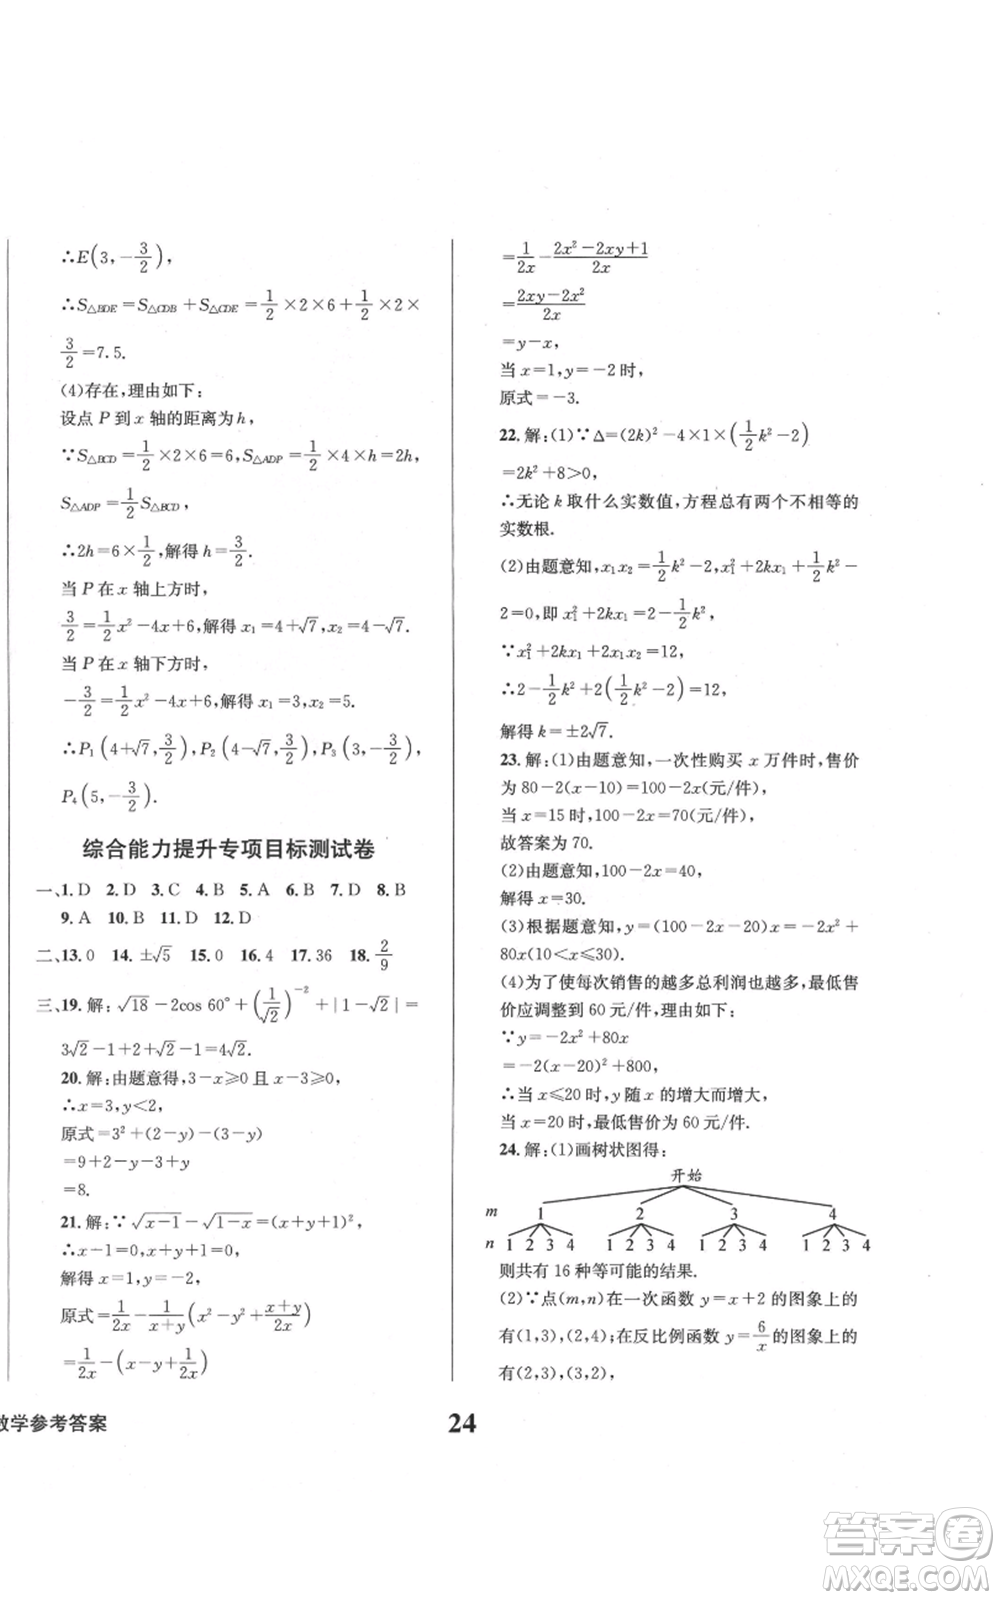 ∴E(3,-3/2),
∴S△BDE=S△CDB+S△CDE=1/2×2×6+1/2×2×
3/2=7.5.
(4)存在,理由如下:
设点 P 到 x 轴的距离为 h,
∵S△BCD=1/2×2×6=6,S△ADP=1/2×4×h=2h,
S△ADP=1/2S△BCD,
∴2h=6×1/2,解得 h=3/2.
当 P 在 x 轴上方时,
3/2=1/2x²-4x+6,解得 x₁=4+√7,x₂=4-√7.
当 P 在 x 轴下方时,
-3/2=1/2x²-4x+6,解得 x₁=3,x₂=5.
∴P₁(4+√7,3/2),P₂(4-√7,3/2),P₃(3,-3/2),
P₄(5,-3/2).
综合能力提升专项目标测试卷
一、1.D 2.D 3.C 4.B 5.A 6.B 7.D 8.B
9.A 10.B 11.D 12.D
二、13.0 14.±√5 15.0 16.4 17.36 18.2/9
三、19.解:√18-2cos 60°+(1/√2)⁻²+|1-√2|=
3√2-1+2+√2-1=4√2.
20.解:由题意得,3-x≥0 且 x-3≥0,
∴x=3,y<2,
原式=3²+(2-y)-(3-y)
=9+2-y-3+y
=8.
21.解:∵√(x-1)-√(1-x)=(x+y+1)²,
∴x-1=0,x+y+1=0,
解得 x=1,y=-2,
原式=1/2x-1/(x+y)(x²-y²+(x+y)/2x)
=1/2x-(x-y+1/2x)
=1/2x-(2x²-2xy+1)/2x
=(2xy-2x²)/2x
=y-x,
当 x=1,y=-2 时,
原式=-3.
22.解:(1)∵Δ=(2k)²-4×1×(1/2k²-2)
=2k²+8>0,
∴无论 k 取什么实数值,方程总有两个不相等的
实数根.
(2)由题意知,x₁x₂=1/2k²-2,x₁²+2kx₁+1/2k²-
2=0,即 x₁²+2kx₁=2-1/2k²,
∵x₁²+2kx₁+2x₁x₂=12,
∴2-1/2k²+2(1/2k²-2)=12,
解得 k=±2√7.
23.解:(1)由题意知,一次性购买 x 万件时,售价
为 80-2(x-10)=100-2x(元/件),
当 x=15 时,100-2x=70(元/件),
故答案为 70.
(2)由题意知,100-2x=40,
解得 x=30.
(3)根据题意知,y=(100-2x-20)x=-2x²+
80x(10<x≤30).
(4)为了使每次销售的越多总利润也越多,最低售
价应调整到 60 元/件,理由如下:
∵y=-2x²+80x
=-2(x-20)²+800,
∴当 x≤20 时,y 随 x 的增大而增大,
当 x=20 时,最低售价为 60 元/件.
24.解:(1)画树状图得:
开始
m 1 2 3 4
n 1 2 3 4 1 2 3 4 1 2 3 4 1 2 3 4
则共有 16 种等可能的结果.
(2)∵点(m,n)在一次函数 y=x+2 的图象上的
有(1,3),(2,4);在反比例函数 y=6/x 的图象上的
有(2,3),(3,2),
数学参考答案
24
答案卷
MXQE.COM